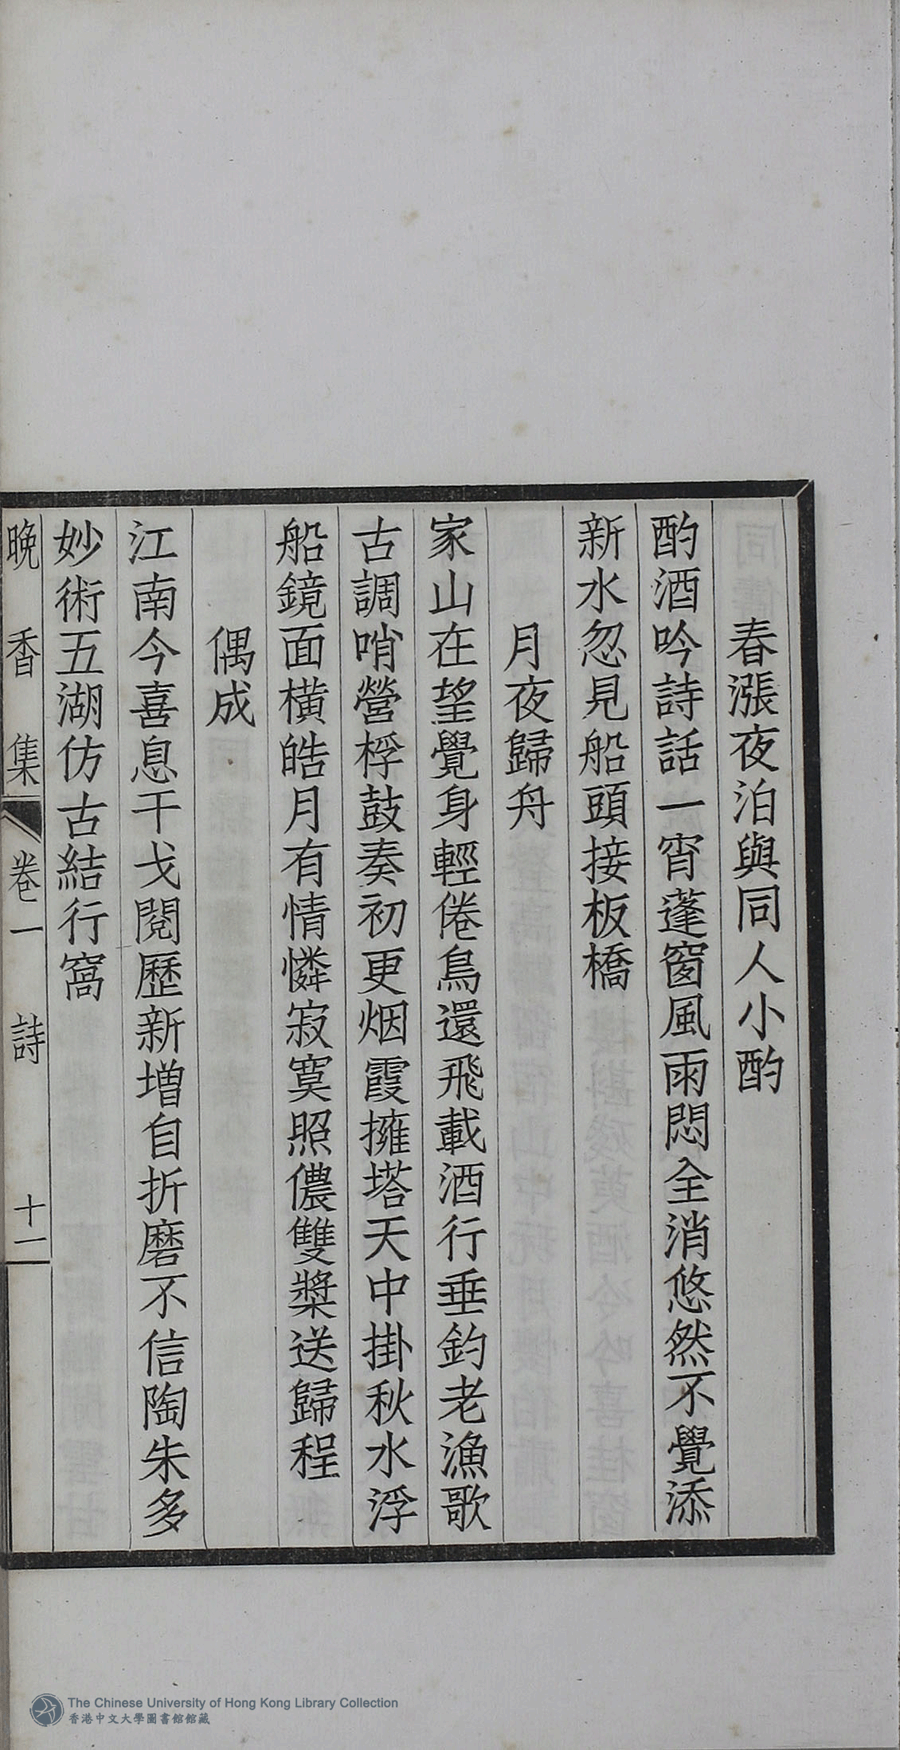 春漲夜泊與同人小酌
酌酒吟詩話一宵蓬窗風雨悶全消悠然不覺添
新水忽見船頭接板橋
月夜歸舟
家山在望覺身輕倦鳥還飛載酒行垂釣老漁歌
古調哨營桴鼓奏初更烟霞擁塔天中掛秋水浮
船鏡面橫皓月有情憐寂寞照儂雙槳送歸程
偶成
江南今喜息干戈閱歷新增自折磨不信陶朱多
妙術五湖仿古結行窩
晚香集 卷一 詩 十一
The Chinese University of Hong Kong Library Collection
香港中文大學圖書館館藏